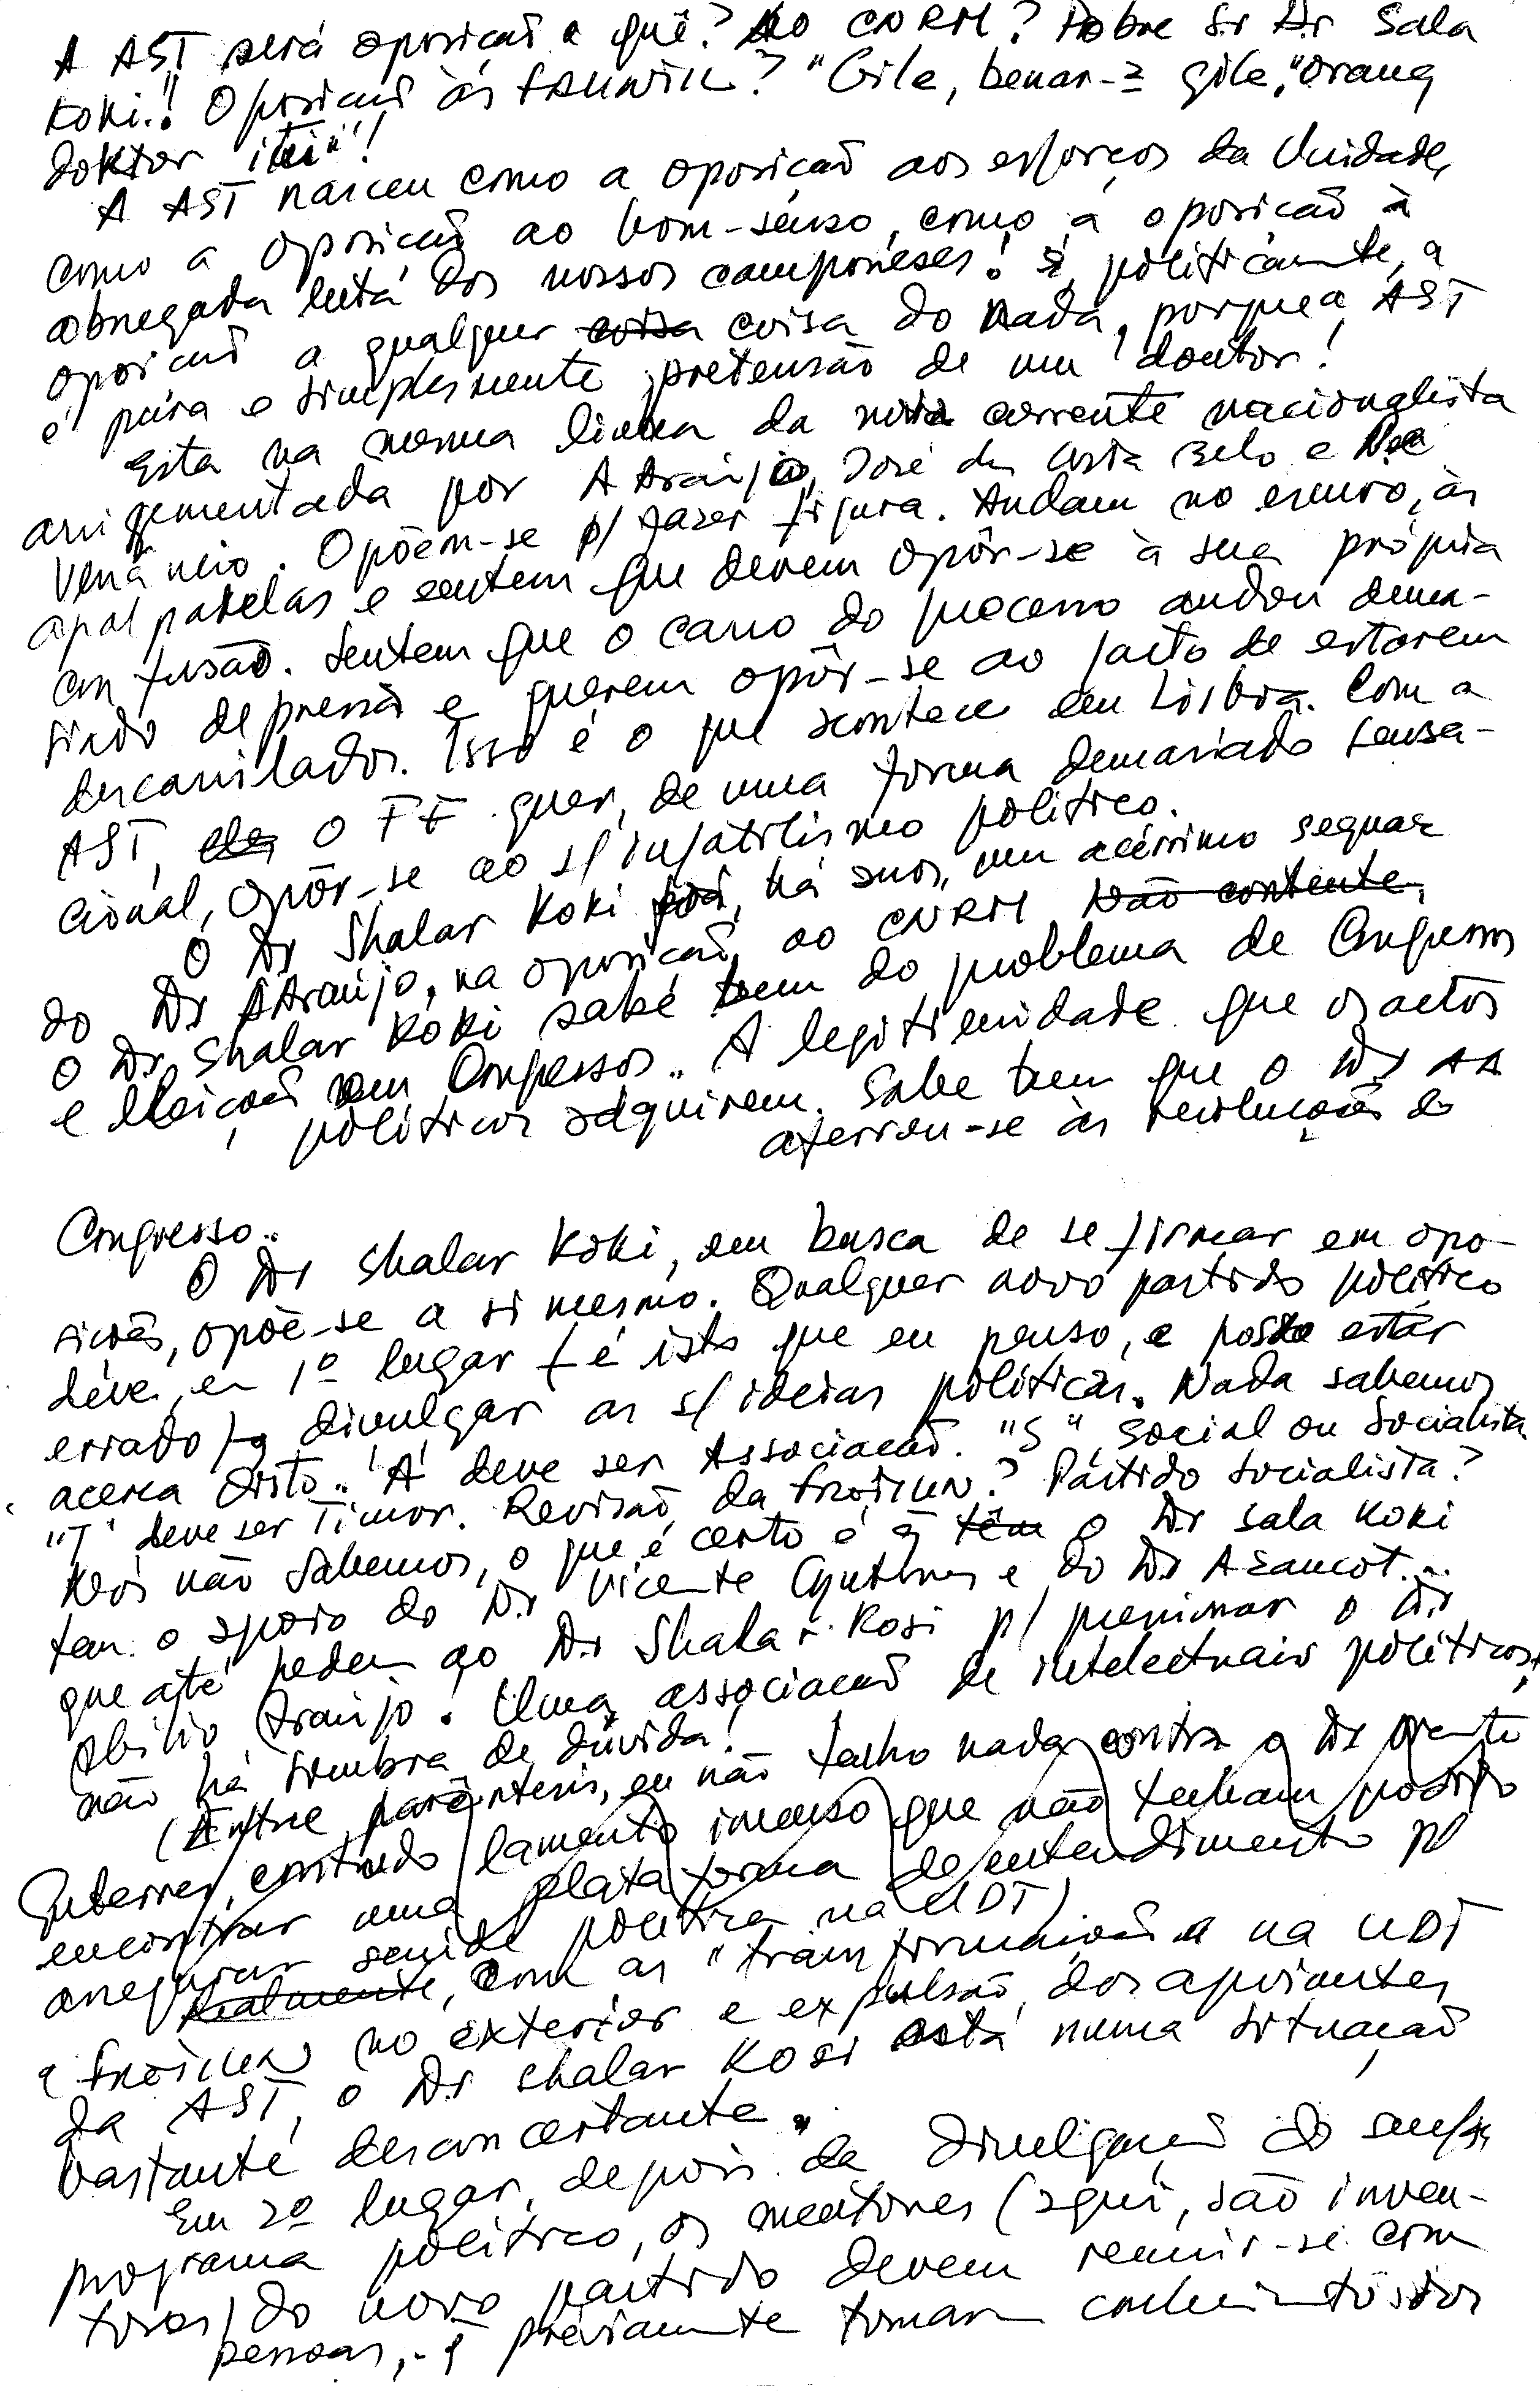 A AST será oposição a quê? Ao CNRM? Pobre Sr Dr Sala
Koki..! Oposição às FALINTIL? "Gila, benar-2 gila, "orang
doktor itu"!
A AST nasceu como a oposição aos esforços da Unidade,
como a oposição ao bom-senso, como a oposição à
abnegada luta dos nossos camponeses! É, politicamente, a
oposição a qualquer coisa do nada, porque a AST
é pura e simplesmente pretensão de um doutor!
Esta na mesma linha da nova corrente nacionalista
arquementada por A Araújo, José da Costa Belo e
Venâncio. Opõem-se p/ fazer figura. Andam no escuro, às
apalpadelas e sentem que devem opôr-se à sua própria
confusão. Sentem que o carro do processo andou dema-
siado depressa e querem opôr-se ao facto de estarem
descarrilados. Isso é o que acontece em Lisboa. Com a
AST, o FF quer, de uma forma demasiado sensa-
cional, opôr-se ao s/ infatilismo político.
O Dr Shalar Koki foi, há anos, um acérrimo sequaz
do Dr AAraújo, na oposição ao CNRM. Não contente,
o Dr Shalar Koki sabe bem do problema de Congressos
e eleições em Congressos.. A legitimidade que os actos
políticos adquirem. Sabe bem que o Dr AA
aferrou-se às resoluções do
Congresso..
O Dr Shalar Koki, em busca de se firmar em opo-
sições, opõe-se a si mesmo. Qualquer novo partido político
deve, em 1º lugar (é isto que eu penso, e posso estar
errado) divulgar as s/ ideias políticas. Nada sabemos
acerca disto.. 'A' deve ser Associação. "S", Social ou Socialista
"T" deve ser Timor. Revisão da FRETILIN? Partido Socialista?
Nós não sabemos, o que é certo é q têm o Dr Sala Koki
tem o apoio do Dr Vicente Guterres e do Dr Azancot...
que até pedem ao Dr Shalar Kosi p/ pressionar o Dr
Abílio Araújo! Uma associação de intelectuais políticos,
não há sombra de dúvida!
(Entre parêntesis, eu não tenho nada contra o Dr Vicente
Guterres, contudo lamento imenso que não tenham podido
encontrar uma plataforma de entendimento p/
assegurar saúde política na UDT)
Realmente, com as "transformações" na UDT
e FRETILIN no exterior e expulsão dos apoiantes
da AST, o Dr Shalar Kosi está numa situação
bastante desconcertante..
Em 2º lugar, depois da divulgação do seu
programa político, os mentores (aqui, são inven-
tores) do novo partido devem reunir-se com
pessoas, q previamente tomaram